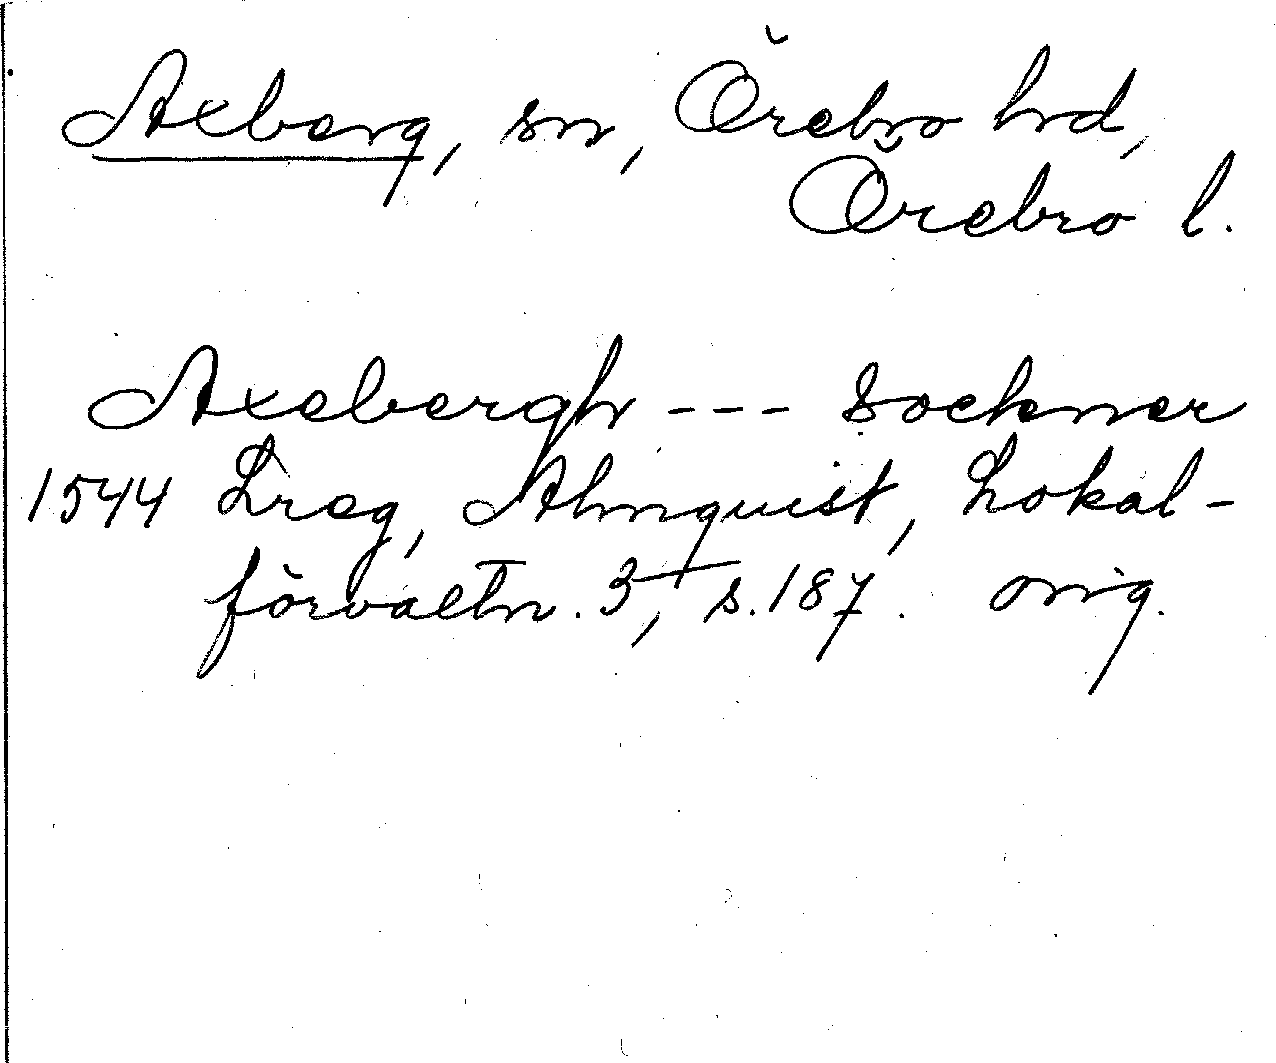 Axberg, sn, Örebro hrd,
Örebro l.
Axebergh --- sochner
1544 Lreg, Almquist, Lokal-
förvaltn. 3, s. 187. orig.